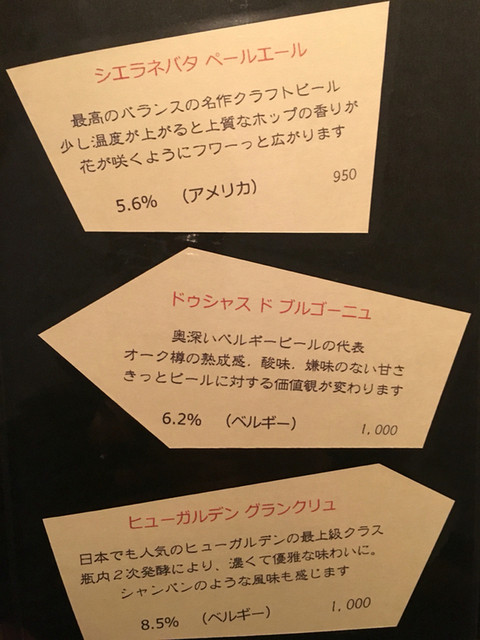 シエラネバタ ペールエール
最高のバランスの名作クラフトビール
少し温度が上がると上質なホップの香りが
花が咲くようにフワーっと広がります
5.6% （アメリカ） 950
ドゥシャス ド ブルゴーニュ
奥深いベルギービールの代表
オーク樽の熟成感．酸味．嫌味のない甘さ
きっとビールに対する価値観が変わります
6.2% （ベルギー） 1,000
ヒューガルデン グランクリュ
日本でも人気のヒューガルデンの最上級クラス
瓶内２次発酵により、濃くて優雅な味わいに。
シャンパンのような風味も感じます
8.5% （ベルギー） 1,000